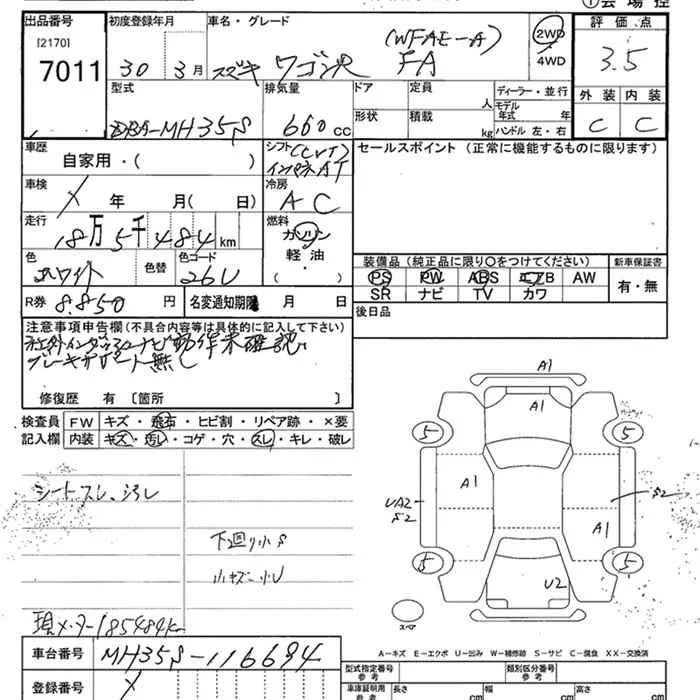 ①会場控
出品番号 初度登録年月 車名・グレード 評価点
[2170]
7011 30 3月 スズキ ワゴンR (WFAE-A) FA 2WD 4WD 3.5
型式 排気量 ドア 定員 人 ディーラー・並行 外装 内装
DBA-MH35S 660cc 形状 積載 kg モデル年式 年 ハンドル 左・右 C C
車歴 自家用・( ) シフト (CVT) インパネAT セールスポイント (正常に機能するものに限ります)
車検 X 年 月( 日) 冷房 AC
走行 18万5千484km 燃料 ガソリン 軽油 ( )
色 ホワイト 色替 色コード 26U 装備品 (純正品に限り○をつけてください) 新車保証書
PS PW ABS エアB AW 有・無
SR ナビ TV カワ
R券 8.850円 名変通知期限 月 日 後日品
注意事項申告欄 (不具合内容等は具体的に記入して下さい)
動作未確認
ブレーキサポート無し
修復歴 有 〔箇所 〕
検査員 FW キズ・飛石・ヒビ割・リペア跡・×要
記入欄 内装 キズ・汚レ・コゲ・穴・スレ・キレ・破レ
A1
A1
5 5
シートスレ、汚レ
A1 S2
UA2
S2
A1
下廻り小S
5 5
小キズ・小U
U2
現メーター185484k
スペア
A-キズ E-エクボ U-凹み W-補修跡 S-サビ C-腐食 XX-交換済
車台番号 MH35S-116694
型式指定番号 参考 類別区分番号 参考
登録番号 X
車庫証明用 参考 長さ cm 幅 cm 高さ cm